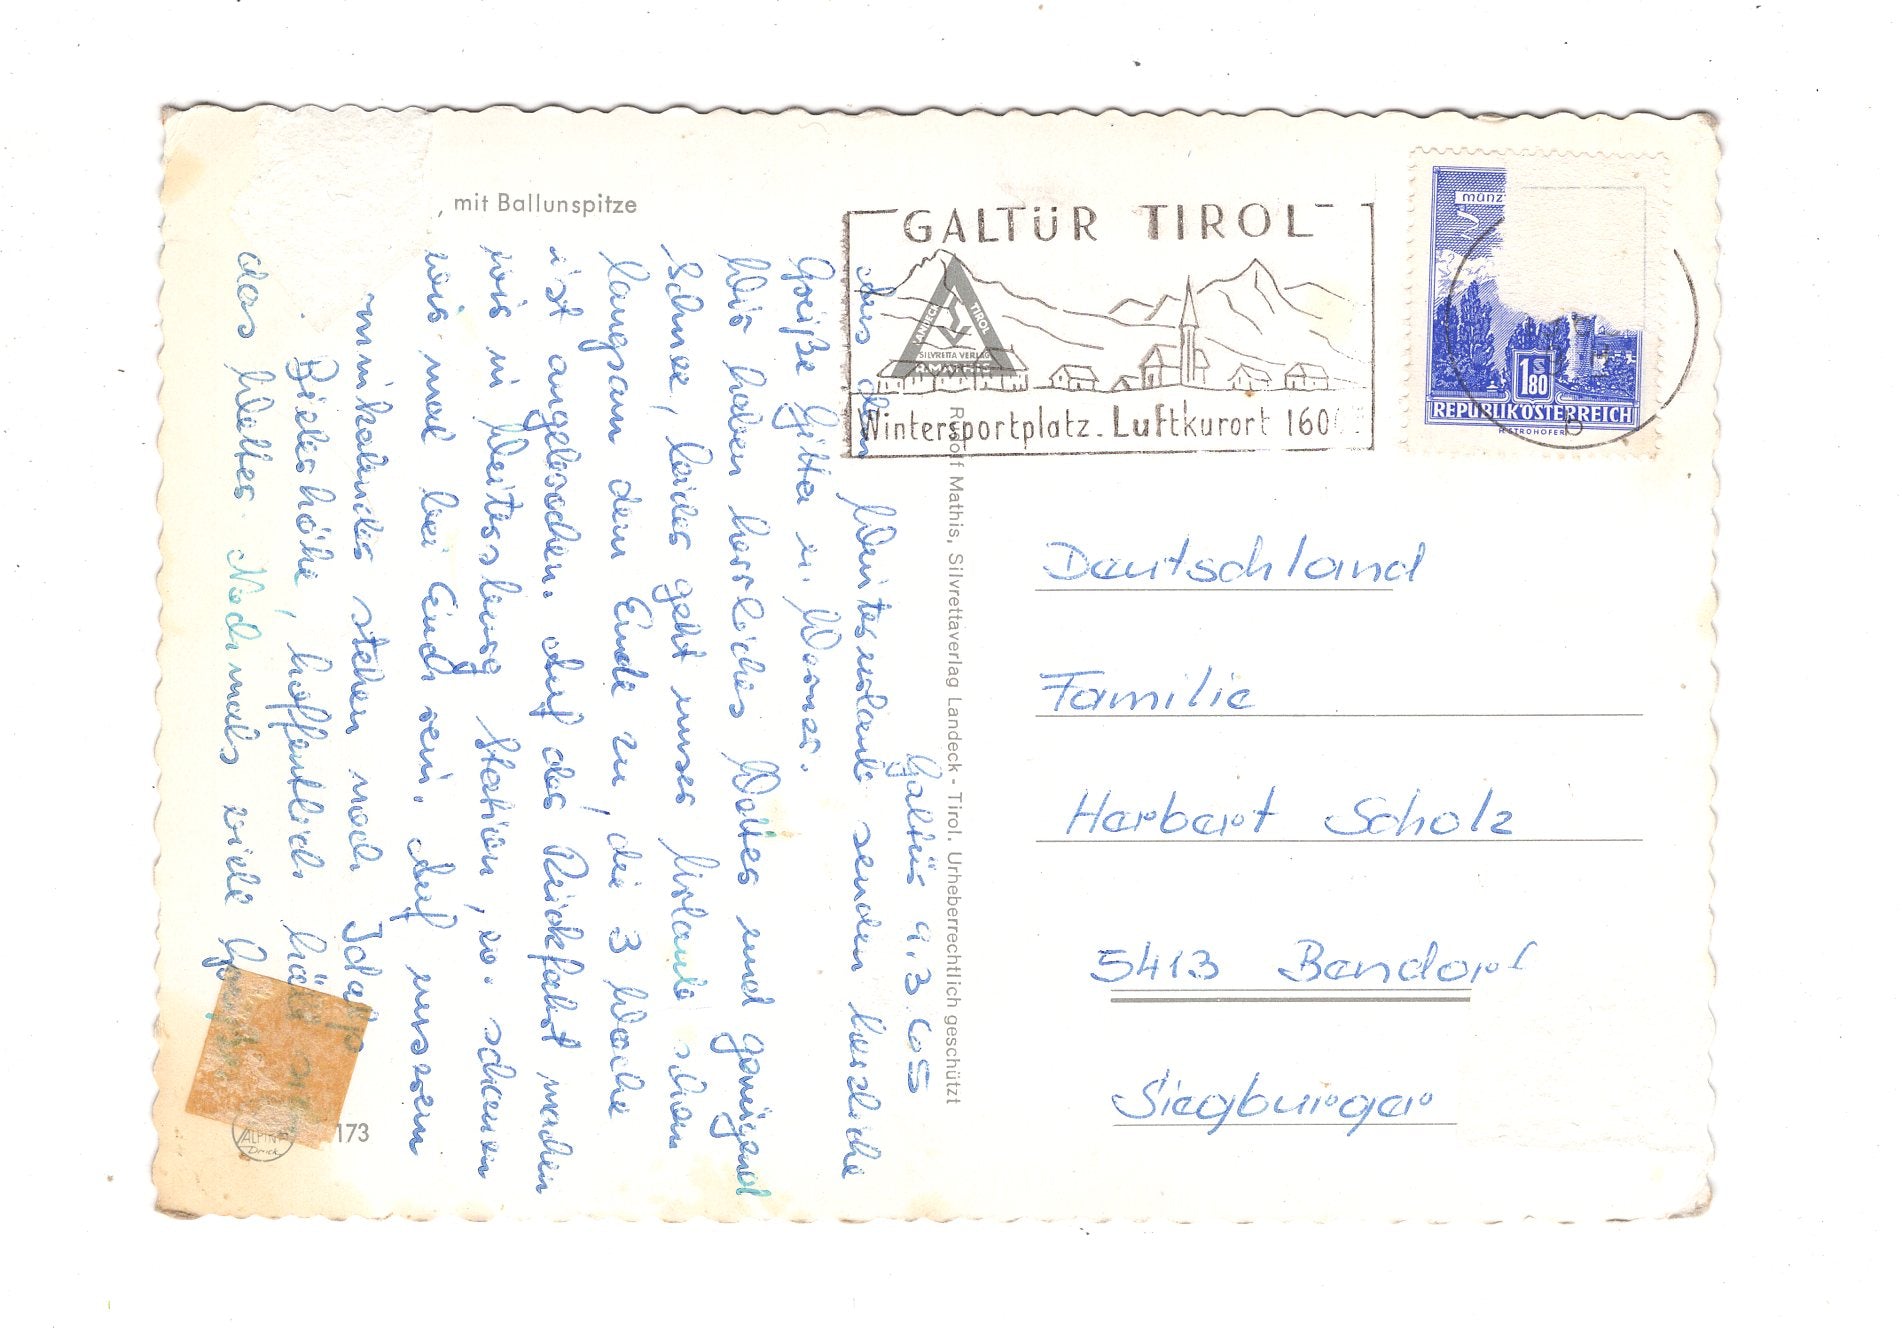 , mit Ballunspitze
GALTÜR TIROL
LANDECK TIROL
SILVRETTA VERLAG
Wintersportplatz. Luftkurort 160
münz
1.80
S
REPUBLIK ÖSTERREICH
H. STROHOFER
b
Rudolf Mathis, Silvrettaverlag Landeck - Tirol. Urheberrechtlich geschützt
Galtür 9.3.65
Aus dem Winterurlaub senden herzliche
Grüße Gitta u. Werner.
Wir haben herrliches Wetter und genügend
Schnee, leider geht unser Urlaub schon
langsam dem Ende zu, die 3 Woche
ist angebrochen. Auf der Rückfahrt machen
wir in Station, u. schauen
wir mal bei Euch rein. Auf unserem
stehen noch Idalp
Bielerhöhe, hoffentlich hält
das Wetter. Nochmals viele Grüße
Deutschland
Familie
Herbert Scholz
5413 Bendorf
Siegburger
ALPINA
Druck
173